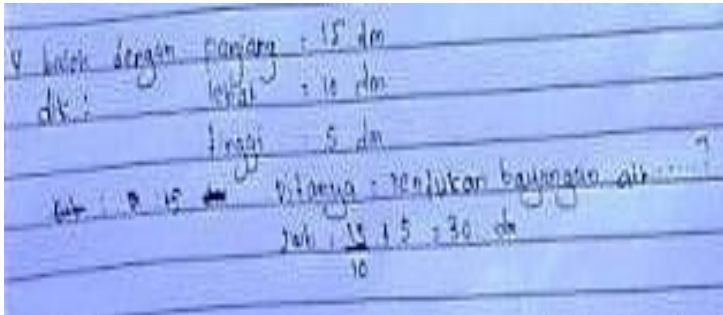 V balok dengan panjang : 15 dm
dik : lebar : 10 dm
tinggi : 5 dm
15 Ditanya : Tentukan bayangan air ..... ?
Jwb : 15 x 5 = 30 dm
10